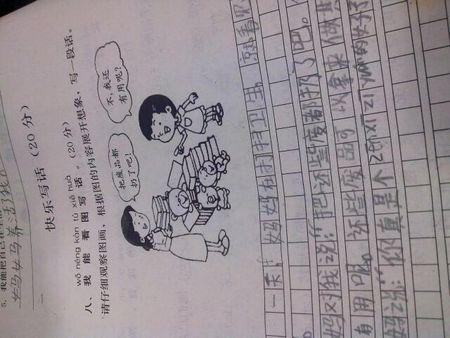 5. 我能把自己
快乐写话（20分）
wǒ néng kàn tú xiě huà
八、我能看图写话。（20分）
请仔细观察图画，根据图的内容展开想象，写一段话。
把废品都扔了吧！
不，我还有用呢？
一天，妈妈在打扫卫生，就看见
妈对我说：“把这些废都扔了吧。
有用呢。这些废品可以拿来做其
妈说：“你真是个